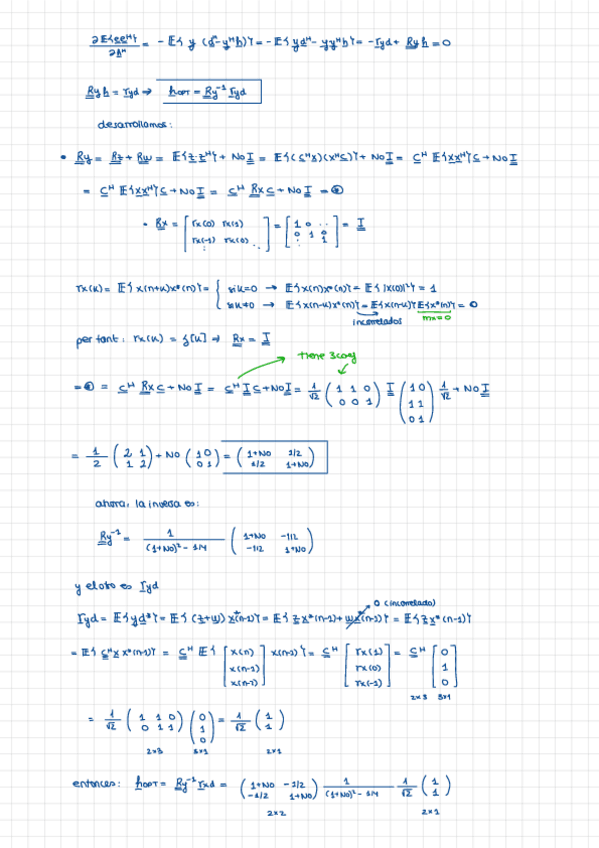 ∂E{ee^H}/∂h^H = -E{y (d^* - y^H h)} = -E{yd^H - yy^H h} = -r_yd + R_y h = 0
R_y h = r_yd → h_OPT = R_y^-1 r_yd
desarrollamos:
• R_y = R_z + R_w = E{z z^H} + No I = E{(C^H x)(x^H C)} + No I = C^H E{xx^H} C + No I
= C^H E{xx^H} C + No I = C^H R_x C + No I =
• R_x = [ rx(0) rx(1) ; rx(-1) rx(0) ⋱ ] = [ 1 0 ·· ; 0 1 0 ; : 1 ] = I
rx(k) = E{x(n+k)x*(n)} = { si k=0 → E{x(n)x*(n)} = E{|x(0)|²} = 1
si k≠0 → E{x(n-k)x*(n)} = E{x(n-k)} E{x*(n)} = 0
incorrelados mx=0
per tant: rx(k) = δ[k] → R_x = I
tiene 3 coef
= C^H R_x C + No I = C^H I C + No I = 1/√2 ( 1 1 0 ; 0 0 1 ) I ( 1 0 ; 1 1 ; 0 1 ) 1/√2 + No I
= 1/2 ( 2 1 ; 1 2 ) + No ( 1 0 ; 0 1 ) = ( 1+No 1/2 ; 1/2 1+No )
ahora, la inversa es:
R_y^-1 = 1/((1+No)² - 1/4) ( 1+No -1/2 ; -1/2 1+No )
y el otro es r_yd
0 (incorrelado)
r_yd = E{yd*} = E{(z+w) x*(n-1)} = E{z x*(n-1) + w x*(n-1)} = E{z x*(n-1)}
= E{C^H x x*(n-1)} = C^H E{ [ x(n) ; x(n-1) ; x(n-1) ] x(n-1)} = C^H [ rx(1) ; rx(0) ; rx(-1) ] = C^H [ 0 ; 1 ; 0 ]
2x3 3x1
= 1/√2 ( 1 1 0 ; 0 1 1 ) ( 0 ; 1 ; 0 ) = 1/√2 ( 1 ; 1 )
2x3 3x1 2x1
entonces: h_OPT = R_y^-1 r_xd = ( 1+No -1/2 ; -1/2 1+No ) 1/((1+No)² - 1/4) 1/√2 ( 1 ; 1 )
2x2 2x1